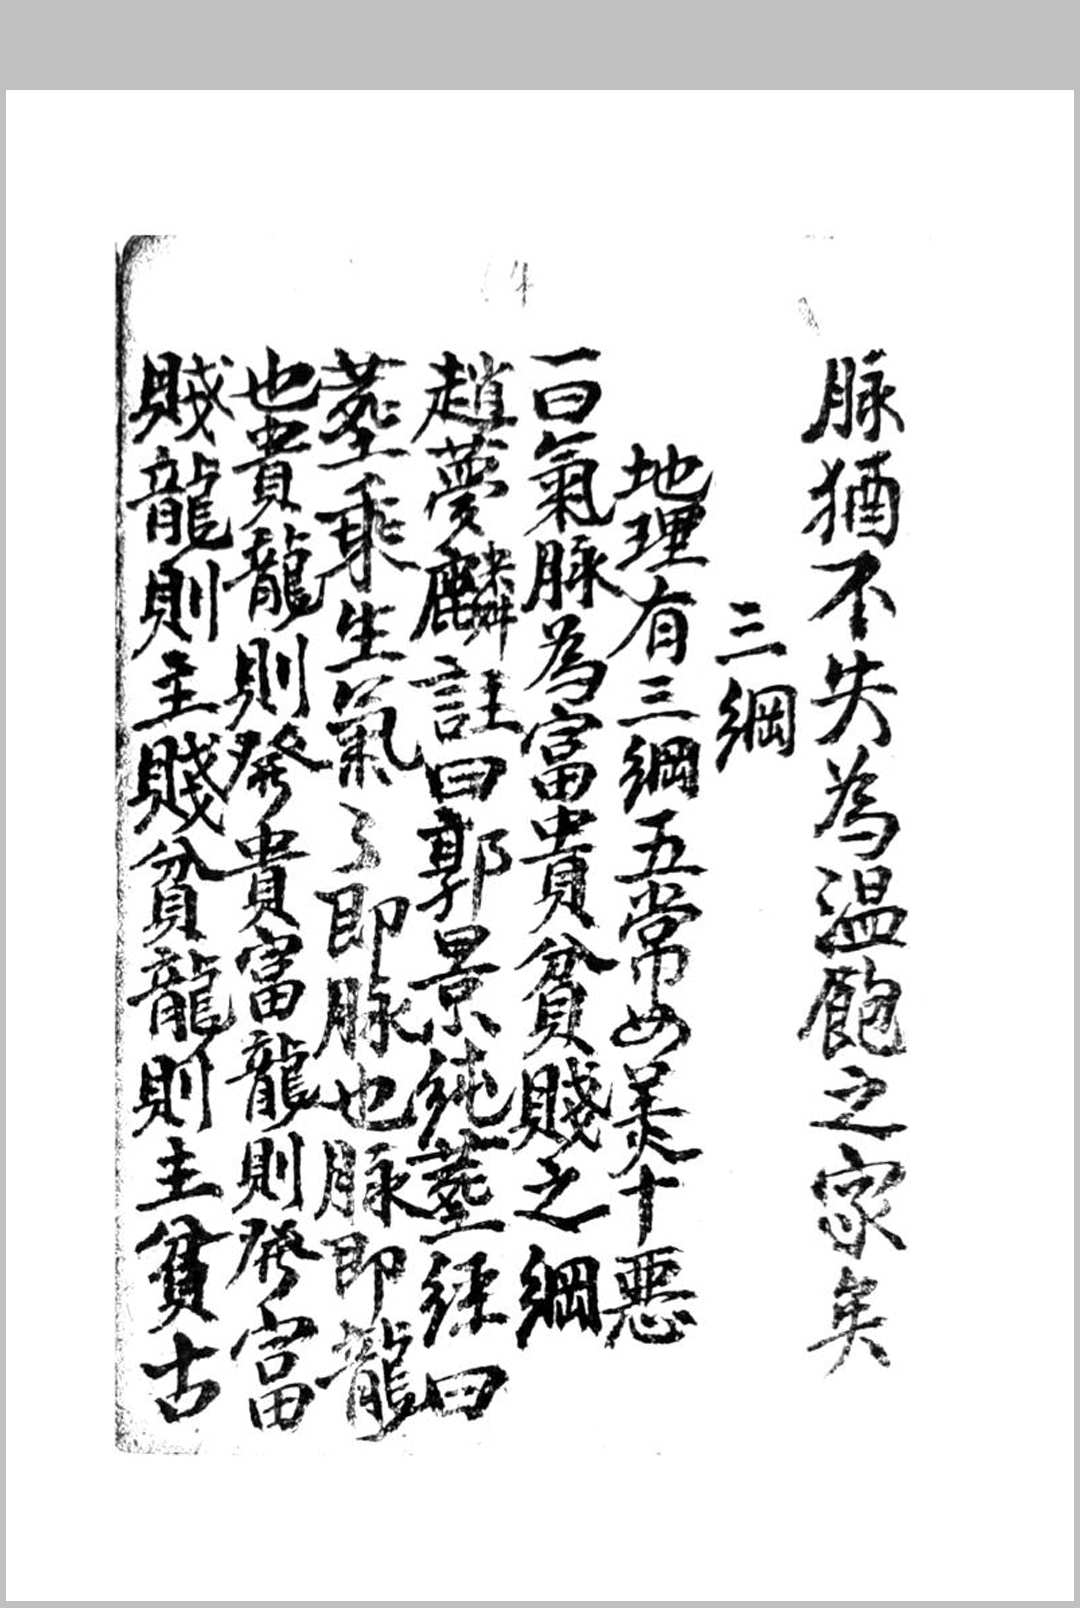 脉猶不失為温飽之家矣
三綱
地理有三綱五常四美十惡
一曰氣脉為富貴貧賤之綱
趙夢麟註曰郭景純塟經曰
塟乗生氣〻即脉也脉即龍
也貴龍則發貴富龍則發富
賤龍則主賤貧龍則主貧古